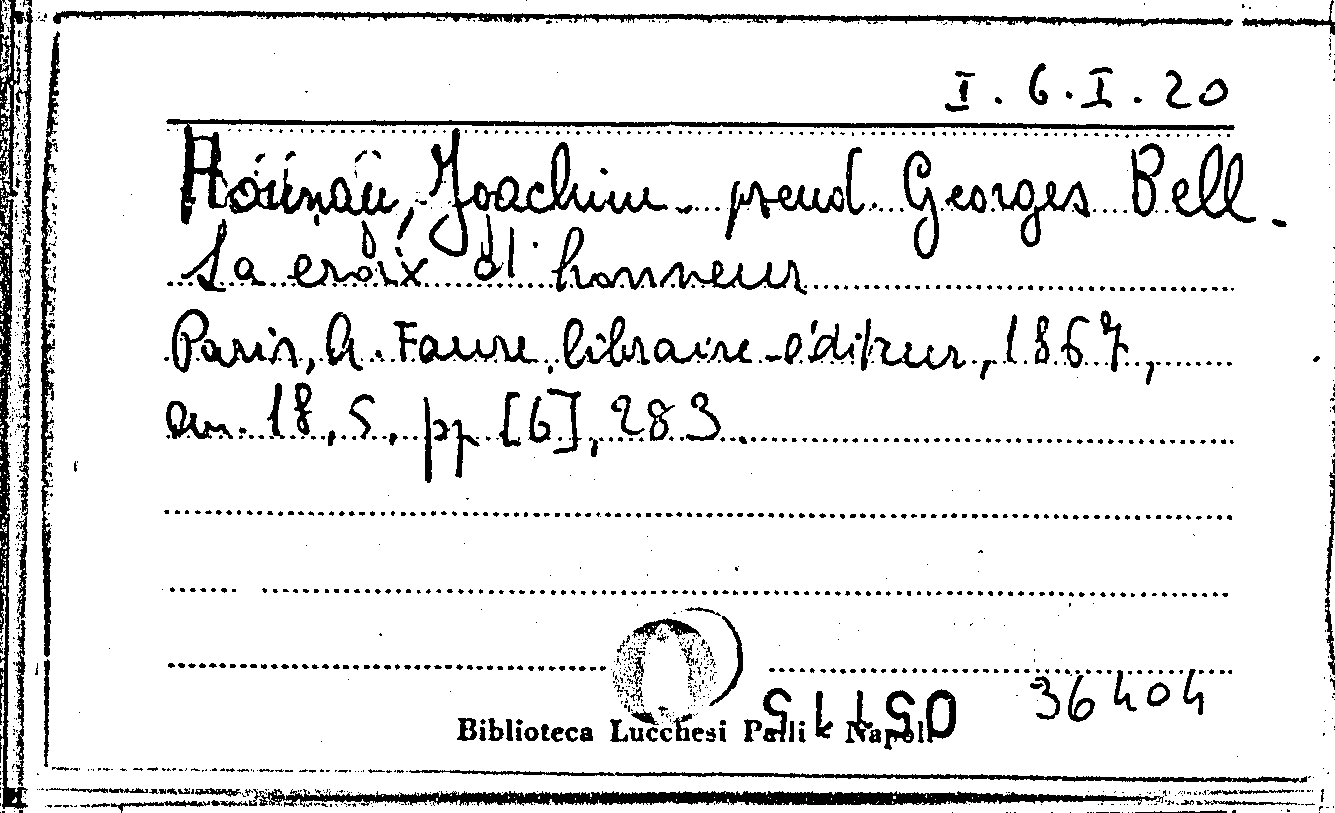 I. 6. I. 20
Hounau, Joachim - pseud Georges Bell -
La croix d'honneur
Paris, A. Faure, libraire-éditeur, 1867,
cm. 18,5, pp [6], 283.
36404
Biblioteca Lucchesi Palli - Napoli